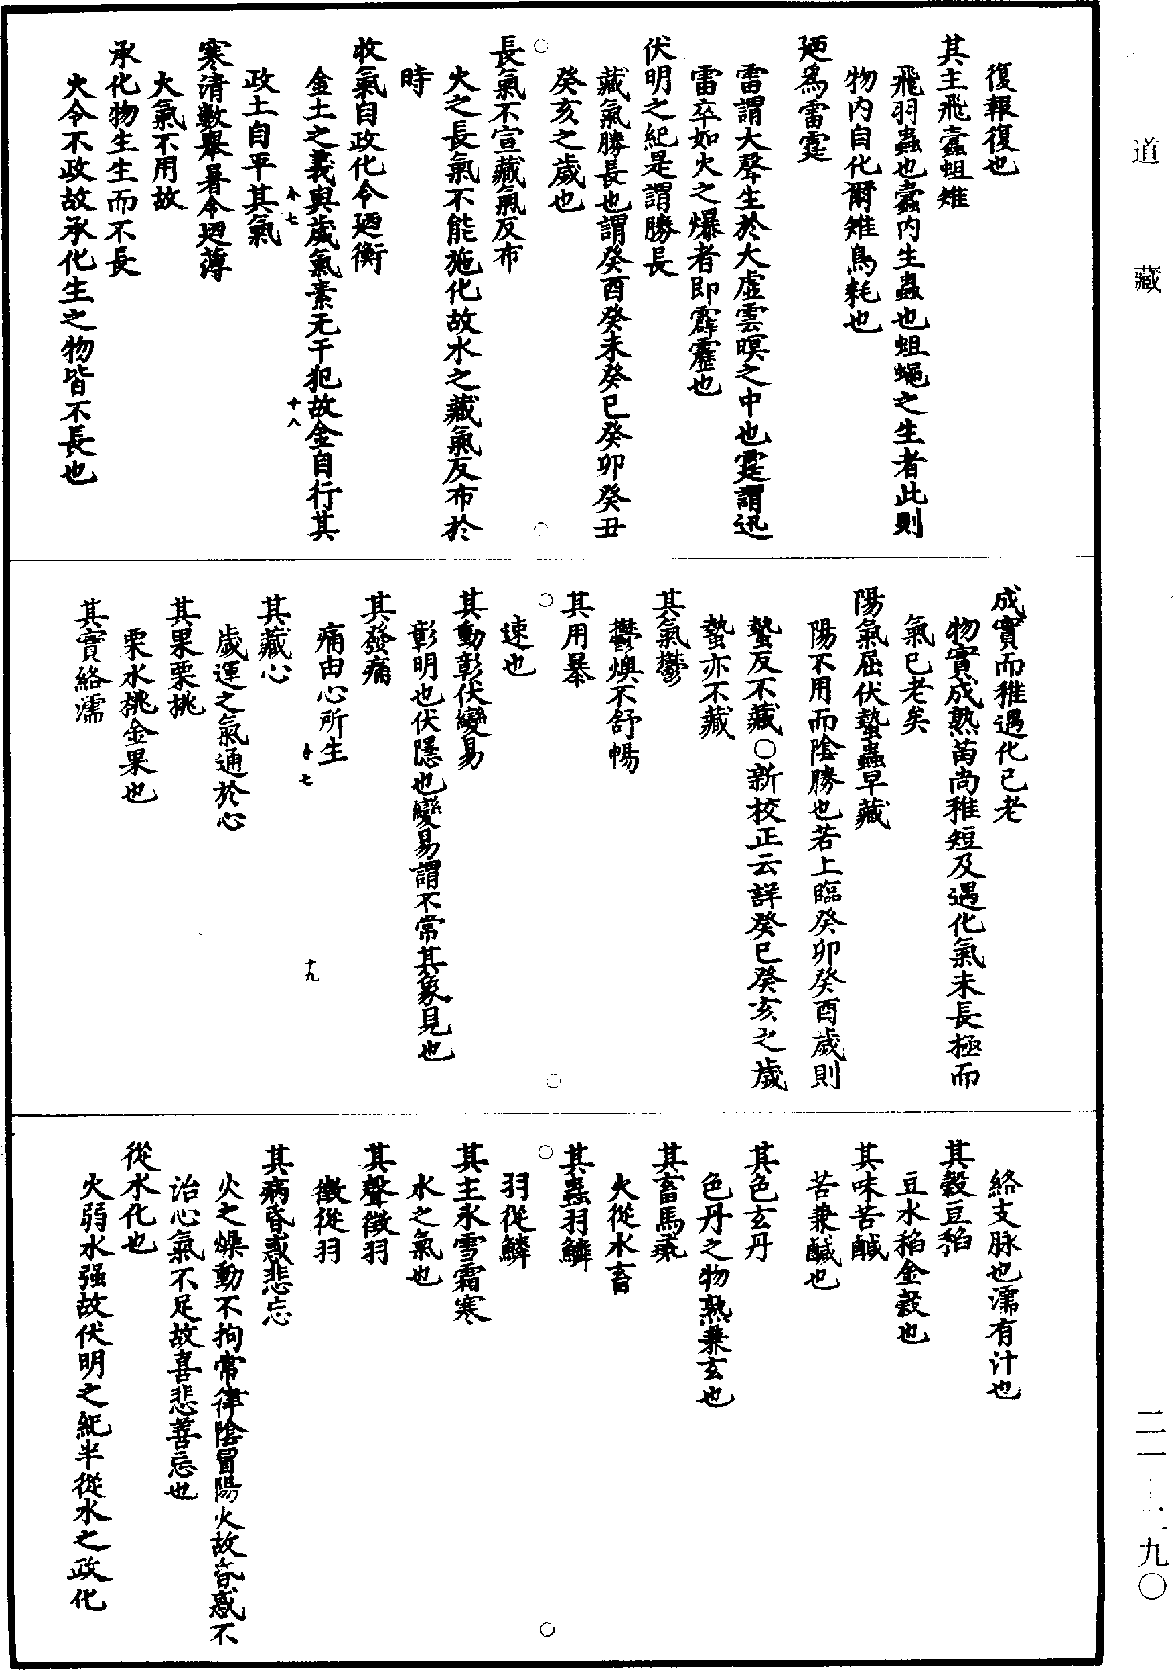 復報復也
其主飛蠹蛆雉
飛羽蟲也蠹內生蟲也蛆蠅之生者此則
物內自化爾雉鳥耗也
廼爲雷霆
雷謂大聲生於大虛雲暝之中也霆謂迅
雷卒如火之爆者即霹靂也
伏明之紀是謂勝長
藏氣勝長也謂癸酉癸未癸巳癸卯癸丑
癸亥之歲也
長氣不宣藏氣反布
火之長氣不能施化故水之藏氣反布於
時
收氣自政化令廼衡
金土之義與歲氣素无干犯故金自行其
政土自平其氣
寒清數舉暑令廼薄
火氣不用故
承化物生生而不長
火令不政故承化生之物皆不長也
成實而稚遇化已老
物實成熟苗尚稚短及遇化氣未長極而
氣已老矣
陽氣屈伏蟄蟲早藏
陽不用而陰勝也若上臨癸卯癸酉歲則
蟄反不藏○新校正云詳癸巳癸亥之歲
蟄亦不藏
其氣鬱
鬱燠不舒暢
其用暴
速也
其動彰伏變易
彰明也伏隱也變易謂不常其象見也
其發痛
痛由心所生
其藏心
歲運之氣通於心
其果栗桃
栗水桃金果也
其實絡濡
絡支脉也濡有汁也
其穀豆稻
豆水稻金穀也
其味苦鹹
苦兼鹹也
其色玄丹
色丹之物熟兼玄也
其畜馬彘
火從水畜
其蟲羽鱗
羽從鱗
其主氷雪霜寒
水之氣也
其聲徵羽
徵從羽
其病昏惑悲忘
火之燥動不拘常律陰冒陽火故昏惑不
治心氣不足故喜悲善忘也
從水化也
火弱水强故伏明之紀半從水之政化
十八
十九
道藏
九〇